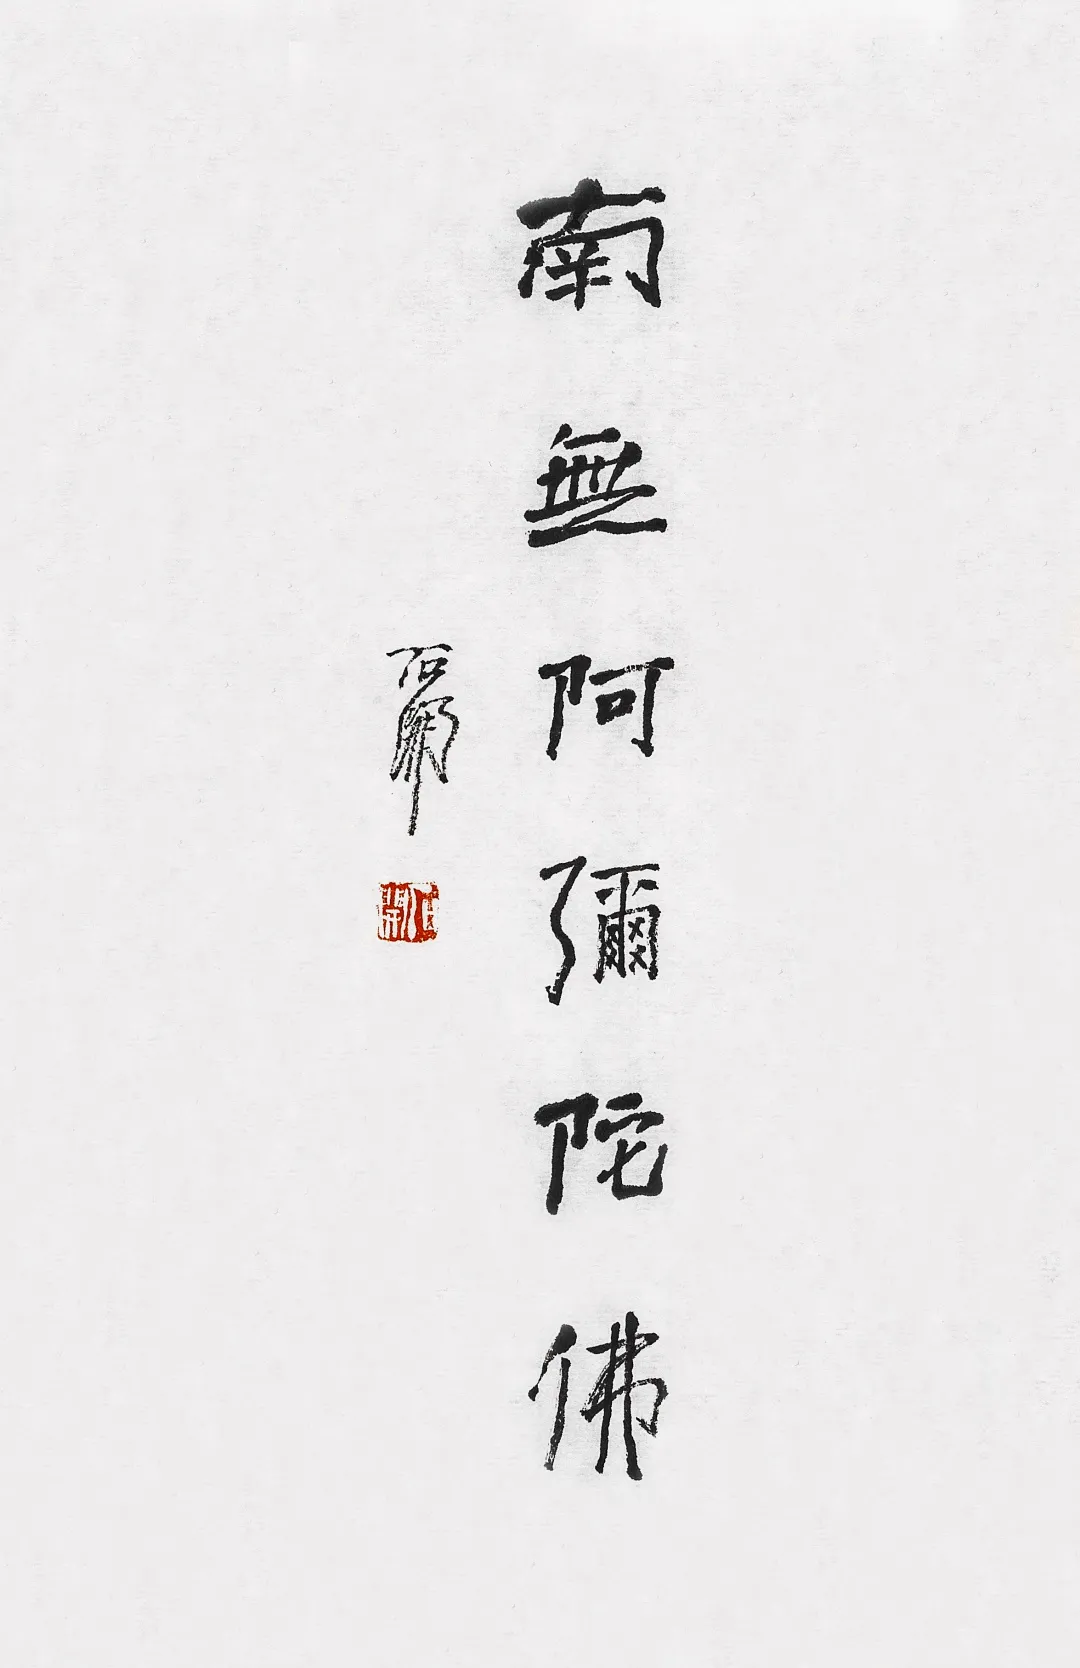 南無阿彌陀佛
石開